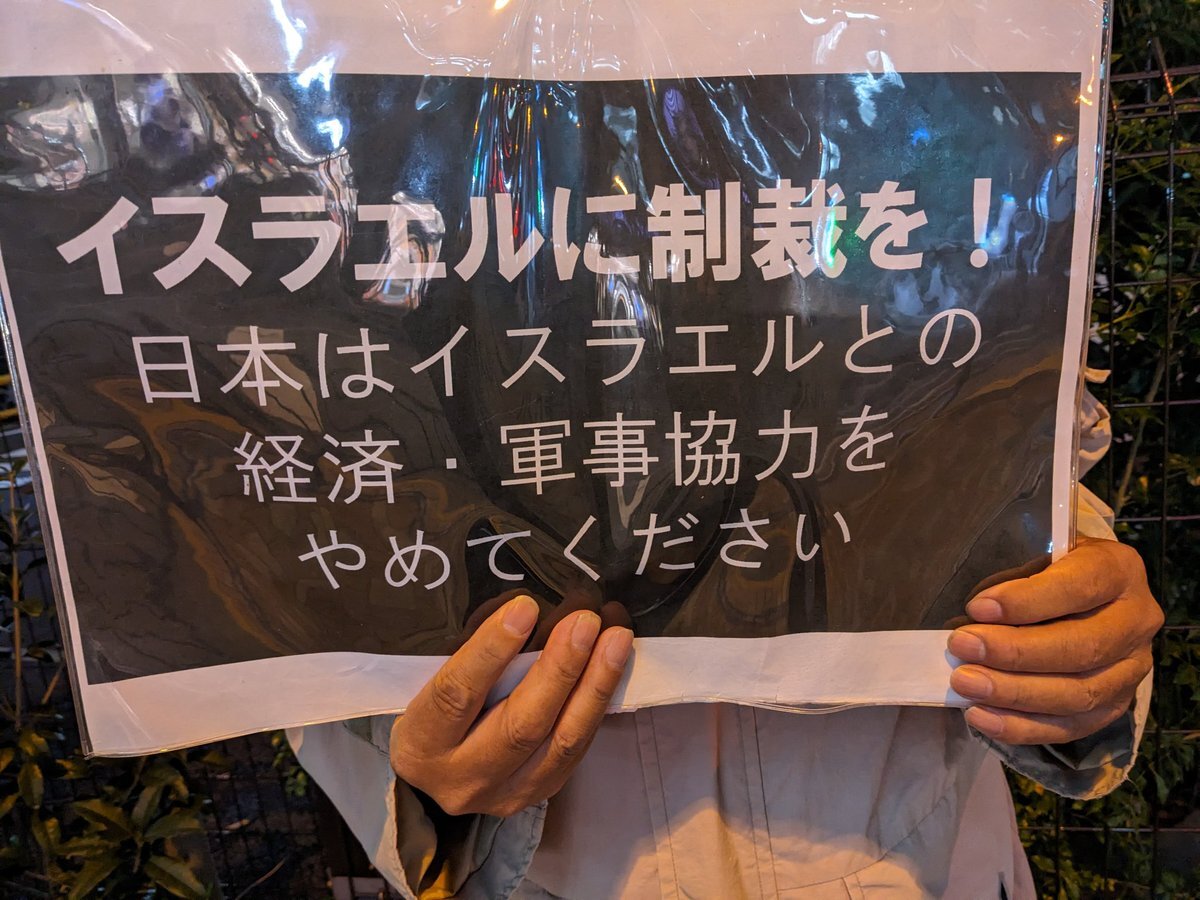 イスラエルに制裁を！
日本はイスラエルとの
経済・軍事協力を
やめてください